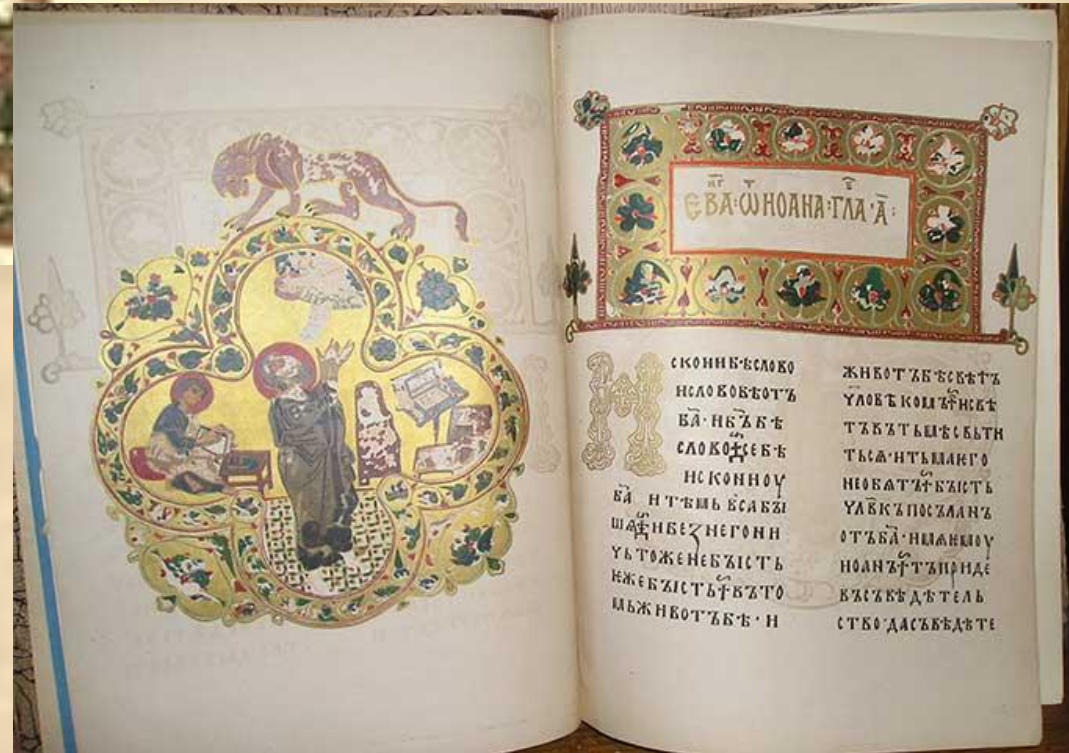 ЄВАⷩ҇Гⷢ·ѾИОАНА·ГЛА·А҃·
ИСКОНИБѢСЛОВО
ИСЛОВОБѢОТЪ
БА҃·ИБ҃ЪБѢ
СЛОВО·СЕБѢ
ИСКОНИОУ
БА҃ ИТѢМЬВЬСАБЫ
ШѦ·ИБЕЗНЕГОНИ
ЧЬТОЖЕНЕБЫСТЬ
ѤЖЕБЫСТЬ·ВЪТО
МЬЖИВОТЪБѢ·И
ЖИВОТЪБѢСВѢТЪ
ЧЛОВѢКОМЪ·ИСВѢ
ТЪВЪТЬМѢСВЬТИ
ТЬСѦ·ИТЬМАѤГО
НЕОБѦТЪ·БЫСТЬ
ЧЛ҃ВКЪПОСЪЛАНЪ
ОТЪБ҃А·ИМѦѤМОУ
ИОАНЪ·ТЪПРИДЕ
ВЪСЪВѢДѢТЕЛЬ
СТВО·ДАСЪВѢДѢТЕ